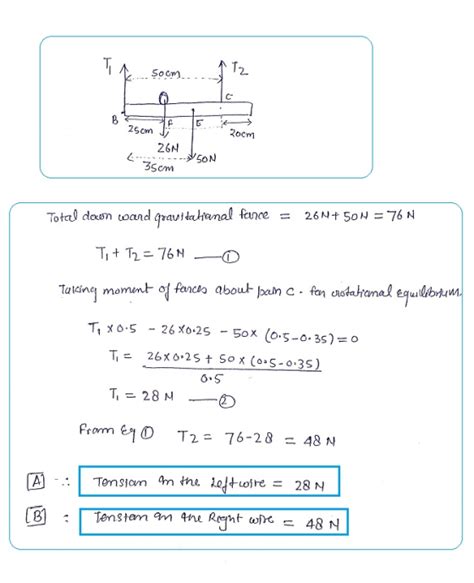 T₁
50cm
T₂
C
B
F
E
25cm
20cm
26N
50N
35cm
Total down ward gravitational force = 26N + 50N = 76N
T₁ + T₂ = 76N —— ①
Taking moment of forces about pain C - for rotational equilibrium.
T₁ × 0.5 - 26×0.25 - 50× (0.5-0.35) = 0
T₁ = 26×0.25 + 50×(0.5-0.35)
0.5
T₁ = 28 N —— ②
From Eq ① T₂ = 76-28 = 48N
A ∴ Tension in the Left wire = 28N
B : Tension in the Right wire = 48N